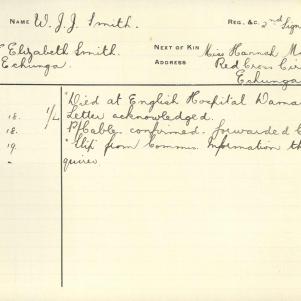 NAME W. J. J. Smith. REG. &C. 2nd Sign
Elizabeth Smith. NEXT OF KIN Miss Hannah
Echunga. ADDRESS Red Cross Cir
Echunga
"Died at English Hospital Dama
18. Letter acknowledged.
18. Cable confirmed. forwarded
19. "Slip from Comms. Information th